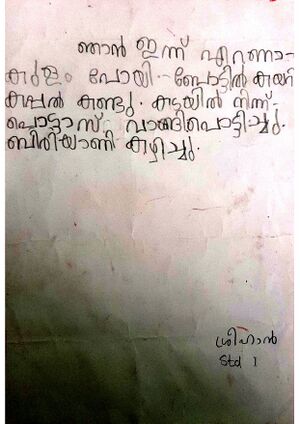 ഞാൻ ഇന്ന് എറണാ-
കുളം പോയി. ബോട്ടിൽ കയറി
കപ്പൽ കണ്ടു. കടയിൽ നിന്ന്
പൊട്ടാസ് വാങ്ങിപൊട്ടിച്ചു.
ബിരിയാണി കഴിച്ചു.
ശ്രീഹാൻ
Std I